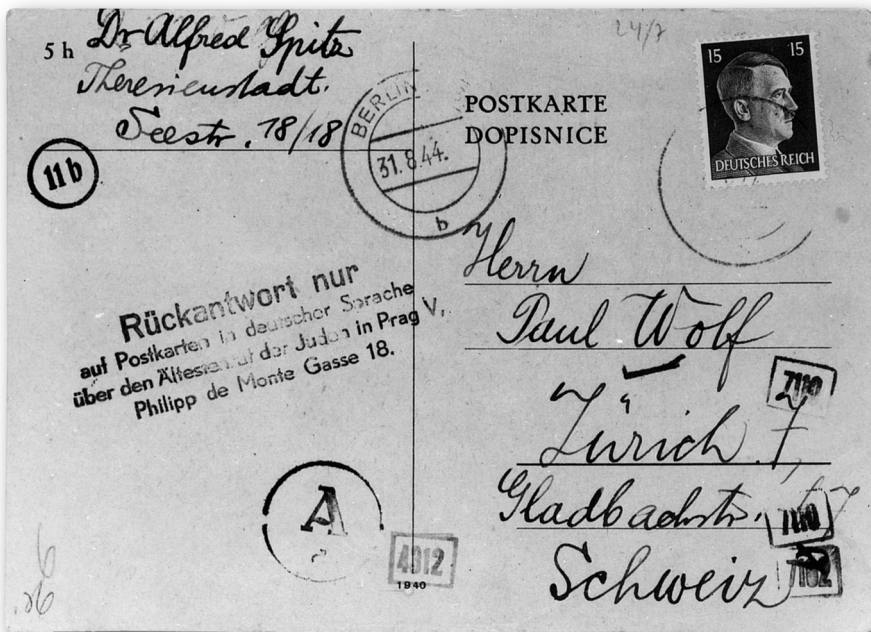 5 h Dr Alfred Spitz
Theresienstadt.
Seestr. 18/18
11b
24/7
BERLIN
31.8.44.
b
POSTKARTE
DOPISNICE
15 15
DEUTSCHES REICH
Rückantwort nur
auf Postkarten in deutscher Sprache
über den Ältestenrat der Juden in Prag V,
Philipp de Monte Gasse 18.
Herrn
Paul Wolf
Zürich 7,
Gladbachstr.
Schweiz
7110
7110
A
4012
1940